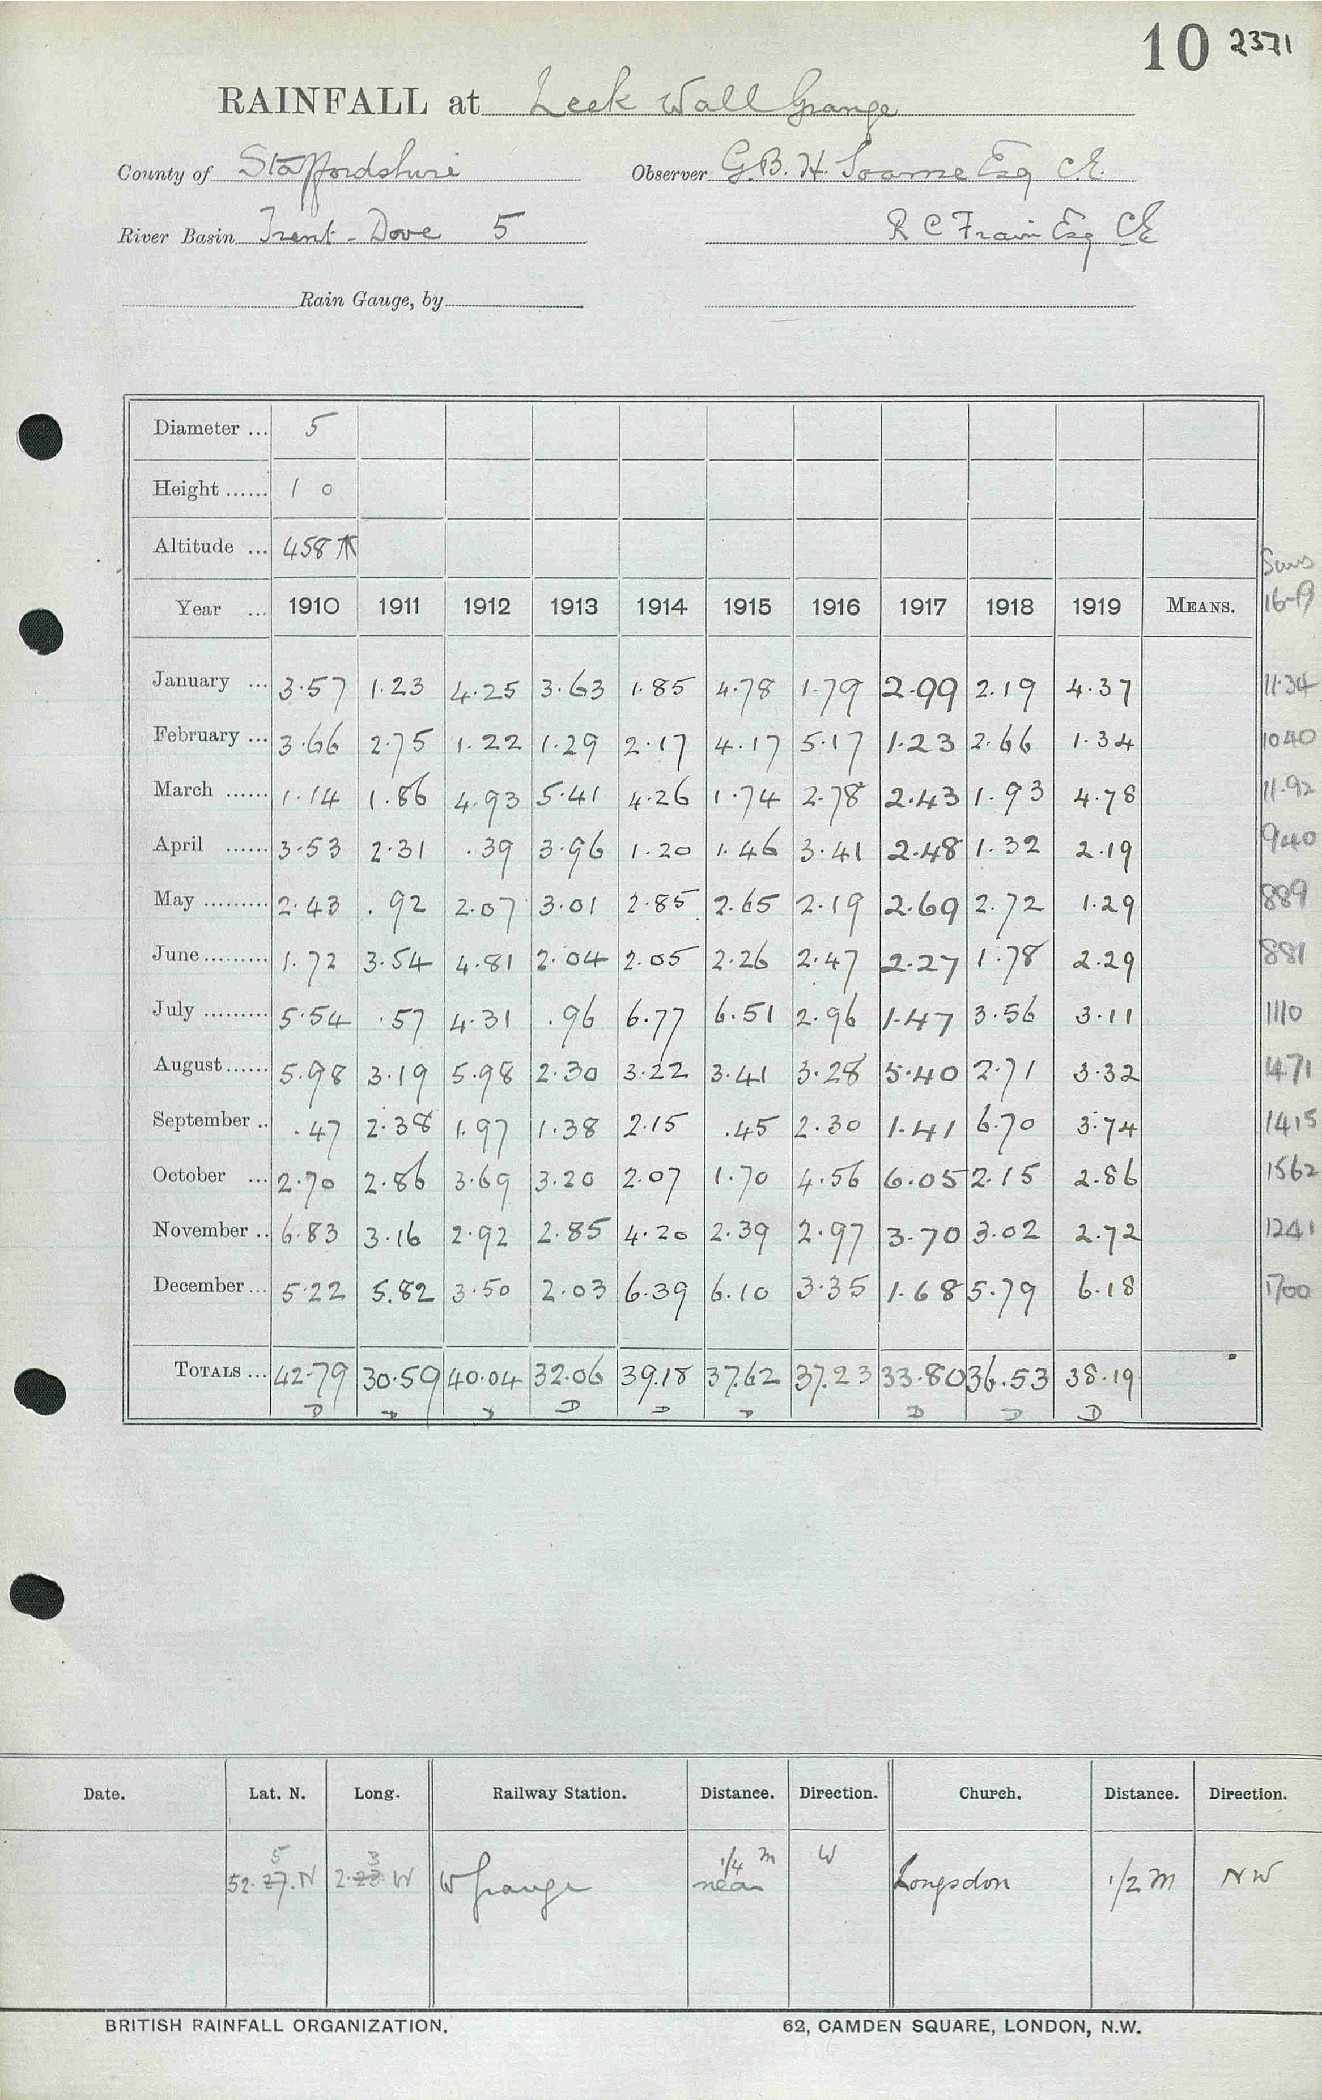 10 2371
RAINFALL at Leek Wall Grange
County of Staffordshire Observer G.B. H. Soame Esq C.E.
River Basin Trent - Dove 5 R C Frain Esq CE
Rain Gauge, by
Diameter ... 5
Height ...... 1 0
Altitude ... 458
Sums
Year ... 1910 1911 1912 1913 1914 1915 1916 1917 1918 1919 MEANS. 16-19
January ... 3.57 1.23 4.25 3.63 1.85 4.78 1.79 2.99 2.19 4.37 11.34
February ... 3.66 2.75 1.22 1.29 2.17 4.17 5.17 1.23 2.66 1.34 1040
March ...... 1.14 1.86 4.93 5.41 4.26 1.74 2.78 2.43 1.93 4.78 11.92
April ...... 3.53 2.31 .39 3.96 1.20 1.46 3.41 2.48 1.32 2.19 940
May ......... 2.43 .92 2.07 3.01 2.85 2.65 2.19 2.69 2.72 1.29 889
June ......... 1.72 3.54 4.81 2.04 2.05 2.26 2.47 2.27 1.78 2.29 881
July ......... 5.54 .57 4.31 .96 6.77 6.51 2.96 1.47 3.56 3.11 1110
August ...... 5.98 3.19 5.98 2.30 3.22 3.41 3.28 5.40 2.71 3.32 1471
September .. .47 2.38 1.97 1.38 2.15 .45 2.30 1.41 6.70 3.74 1415
October ... 2.70 2.86 3.69 3.20 2.07 1.70 4.56 6.05 2.15 2.86 1562
November .. 6.83 3.16 2.92 2.85 4.20 2.39 2.97 3.70 3.02 2.72 1241
December ... 5.22 5.82 3.50 2.03 6.39 6.10 3.35 1.68 5.79 6.18 1700
TOTALS ... 42.79 30.59 40.04 32.06 39.18 37.62 37.23 33.80 36.53 38.19
D D D D D D D D D
Date. Lat. N. Long. Railway Station. Distance. Direction. Church. Distance. Direction.
5 3 1/4 m W
52. 27. N 2. 23. W W Grange near Longsdon 1/2 m NW
BRITISH RAINFALL ORGANIZATION. 62, CAMDEN SQUARE, LONDON, N.W.